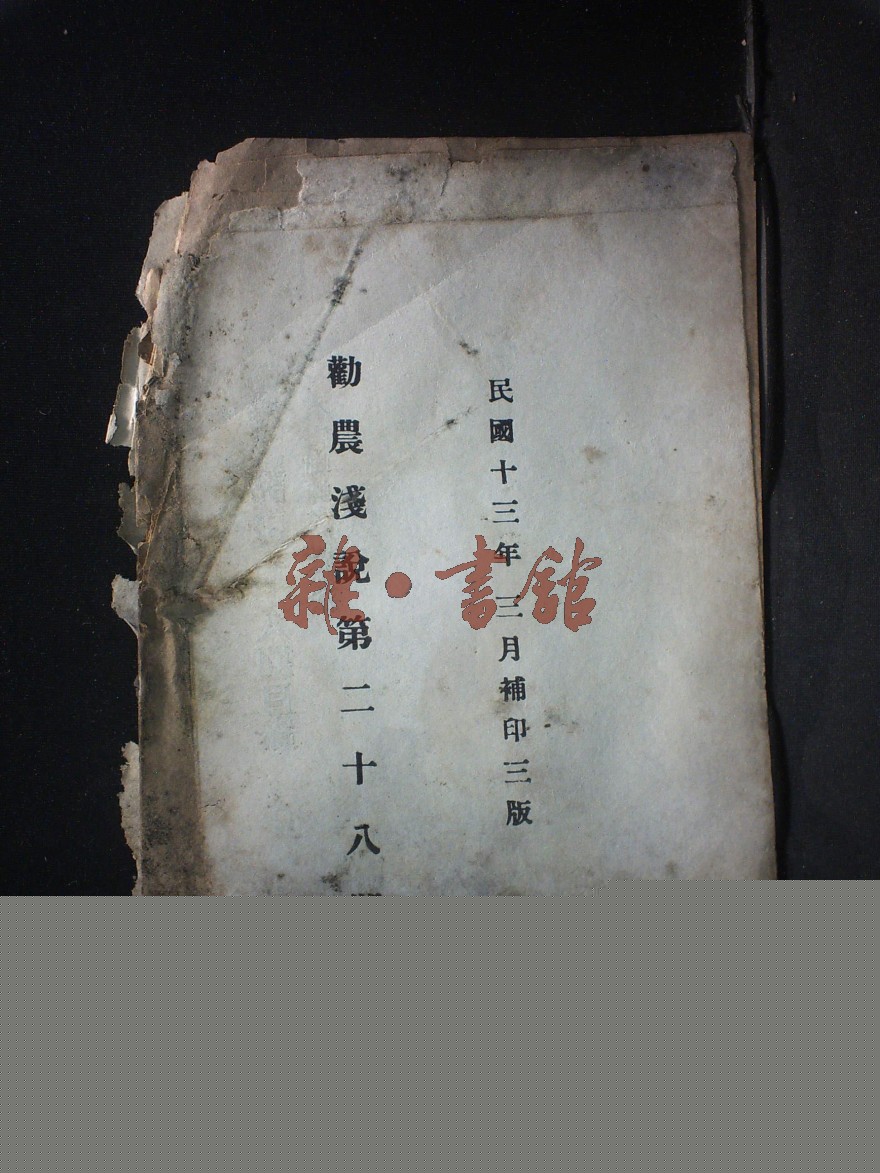 民國十三年三月補印三版
勸農淺說第二十八
雜·書館